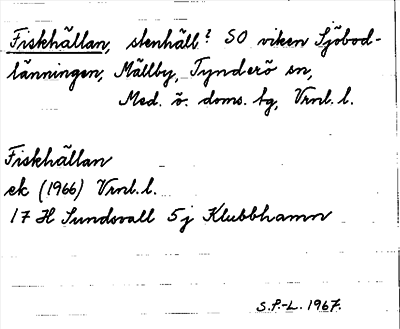 Fiskhällan, stenhäll? SO viken Sjöbod-
länningen, Mällby, Tynderö sn,
Med. ö. doms. hg, Vrnl. l.
Fiskhällan
ek (1966) Vrnl. l.
17 H Sundsvall 5j Klubbhamn
S.P.-L. 1967.